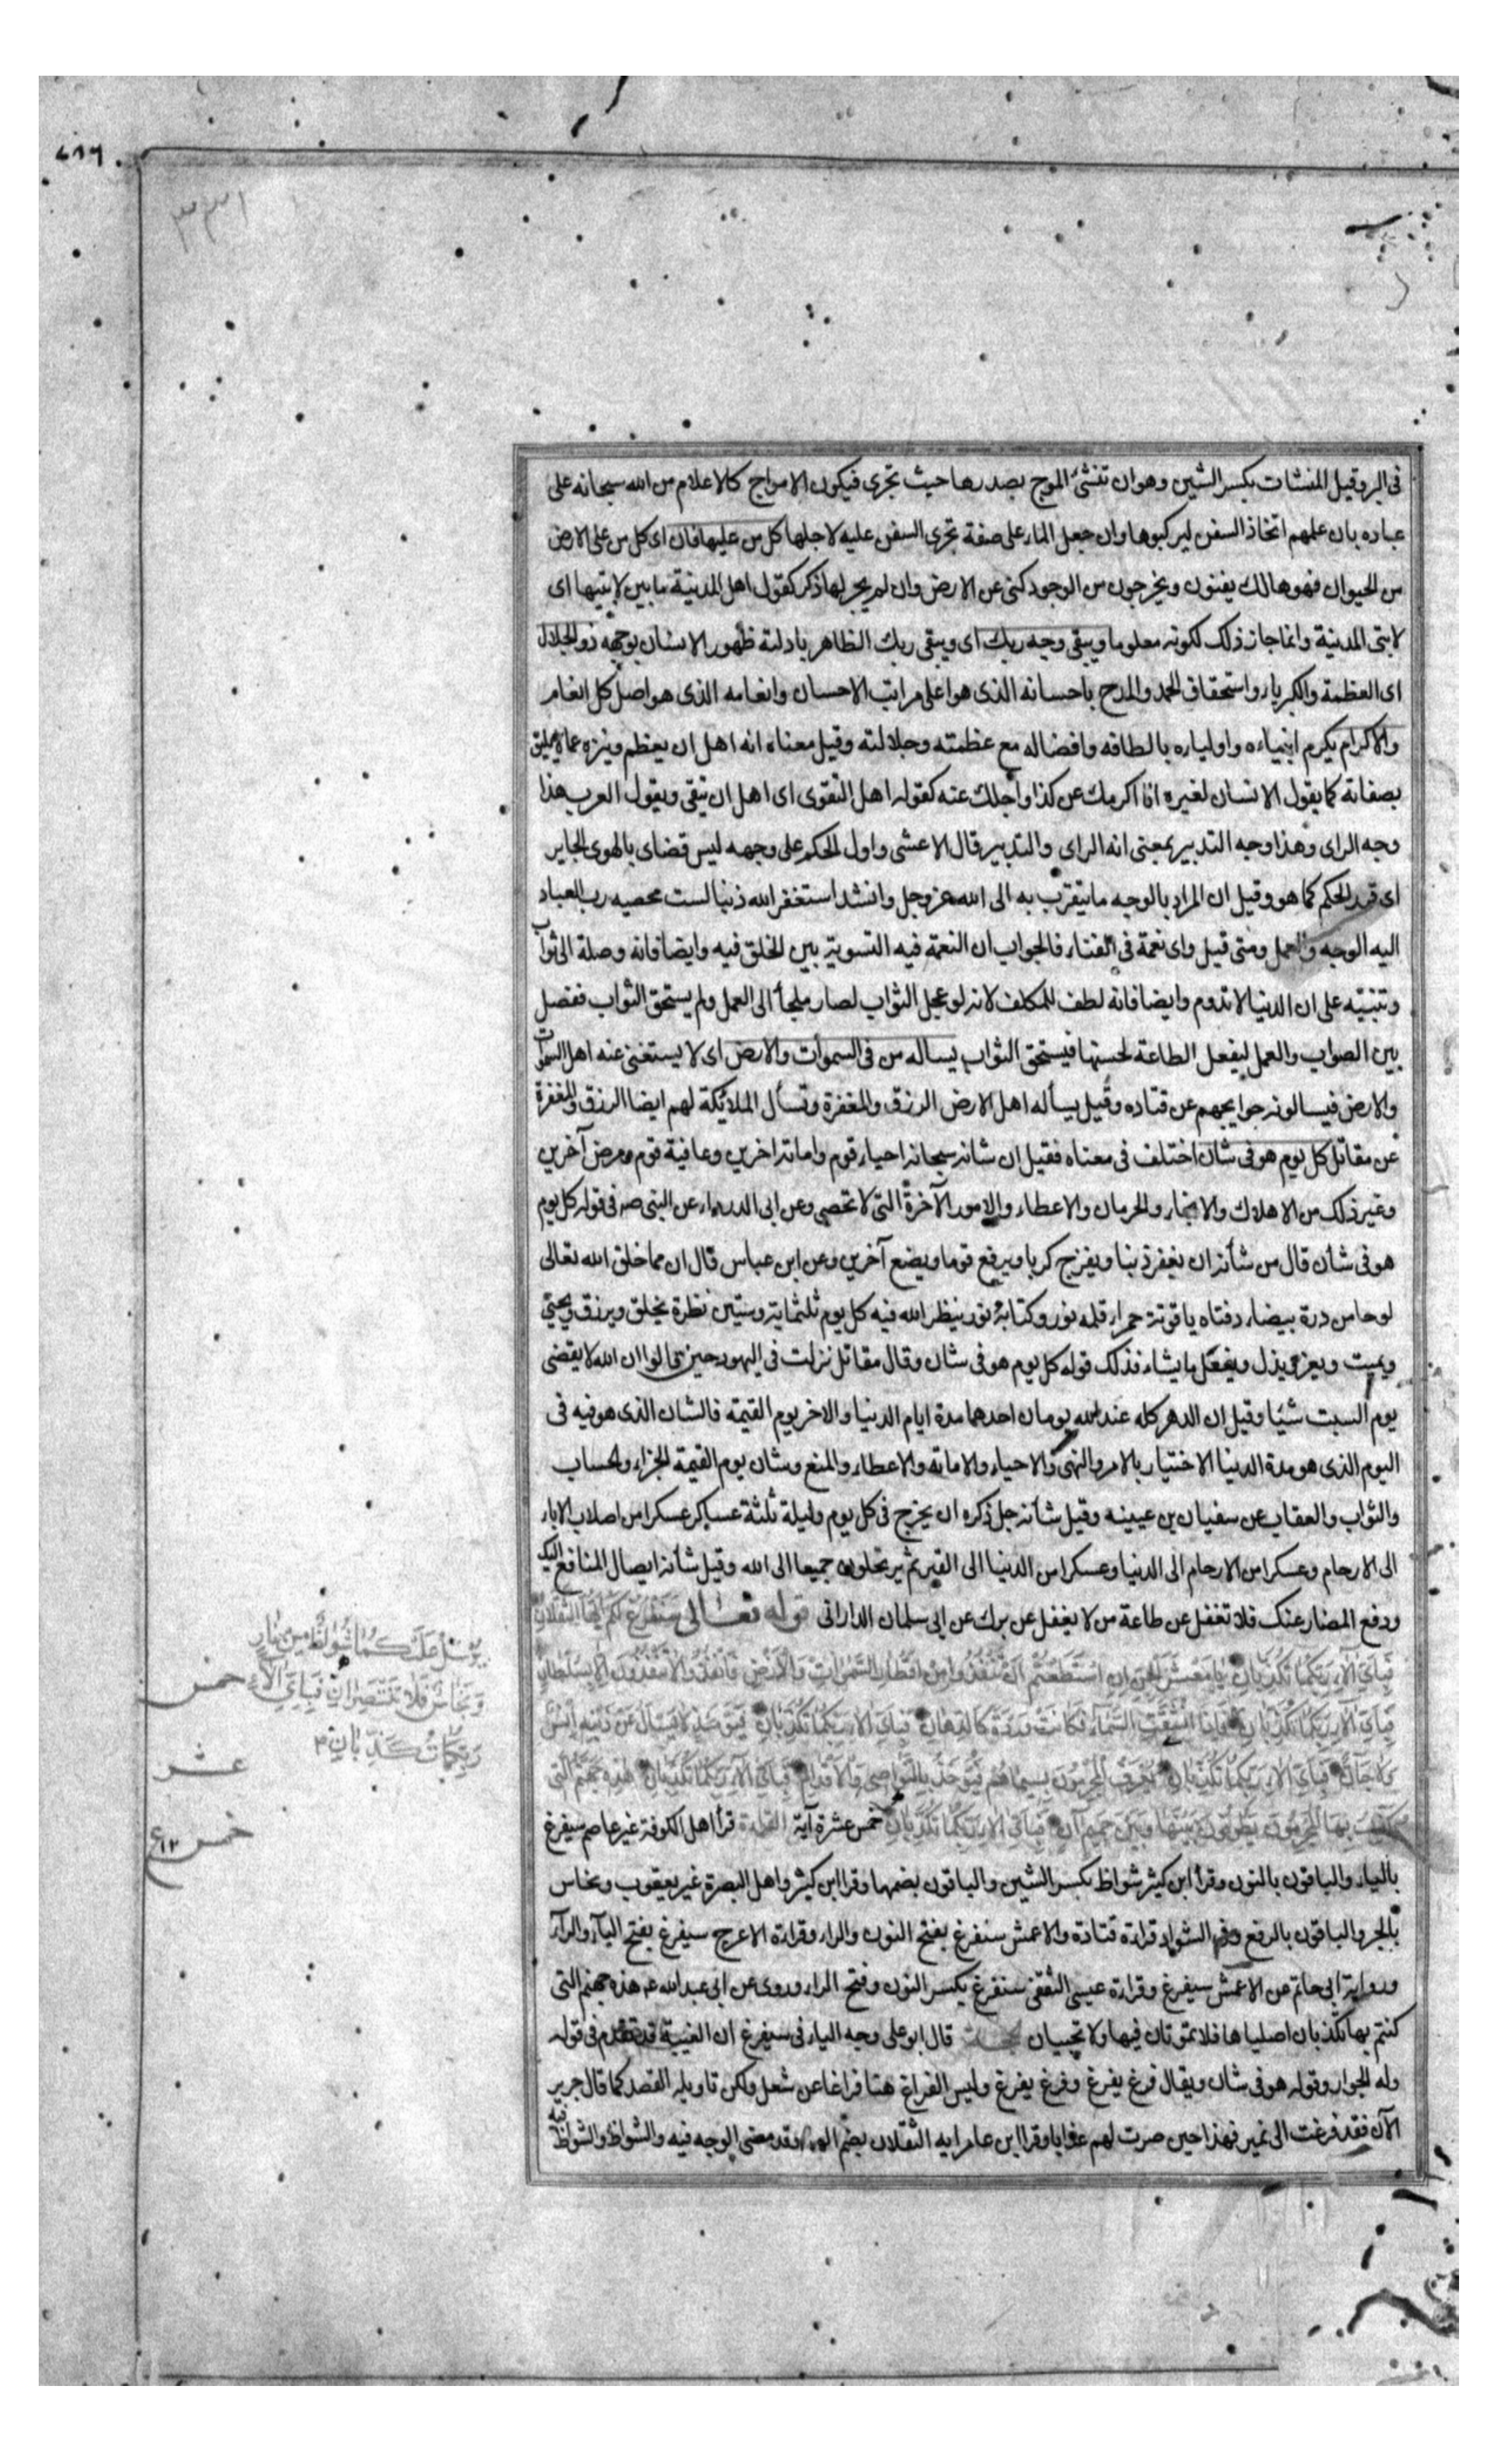 ٧١٦
٣٣١
فى البر وقيل المنشئات بكسر الشين وهو ان تنشئ الموج بصدرها حيث تجرى فيكون الامواج كالاعلام من الله سبحانه على
عباده بان علمهم اتخاذ السفن ليركبوها وان جعل الماء على صفة تجرى السفن عليه لاجلها كل من عليها فان اى كل من على الارض
من الحيوان فهو هالك يفنون ويخرجون من الوجود كنى عن الارض وان لم يجر لها ذكر كقول اهل المدينة ما بين لابتيها اى
لابتى المدينة وانما جاز ذلك لكونه معلوما ويبقى وجه ربك اى ويبقى ربك الظاهر بادلته ظهور الانسان بوجهه ذو الجلال
اى العظمة والكبرياء واستحقاق الحمد والمدح باحسانه الذى هو اعلى مراتب الاحسان وانعامه الذى هو اصل كل انعام
والاكرام يكرم انبياءه واولياره بالطافه وافضاله مع عظمته وجلالته وقيل معناه انه اهل ان يعظم وينزه عما لا يليق
بصفاته كما يقول الانسان لغيره انا اكرمك عن كذا وأجلك عنه كقوله اهل التقوى اى اهل ان يتقى ويقول العرب هذا
وجه الراى وهذا وجه التدبير بمعنى انه الراى والتدبير قال الاعشى واول الحكم على وجهه ليس قضاى بالهوى الجاير
اى قد الحكم كما هو وقيل ان المراد بالوجه ما يتقرب به الى الله عز وجل وانشد استغفر الله ذنبا لست محصيه رب العباد
اليه الوجه والعمل ومتى قيل واى نعمة فى الفناء فالجواب ان النعمة فيه التسوية بين الخلق فيه وايضا فانه وصلة الى ثواب
وتنبيه على ان الدنيا لا تدوم وايضا فانه لطف للمكلف لانه لو عجل الثواب لصار ملجأ الى العمل ولم يستحق الثواب ففصل
بين الصواب والعمل ليفعل الطاعة لحسنها فيستحق الثواب يساله من فى السموات والارض اى لا يستغنى عنه اهل السموات
والارض فيسالونه حوايجهم عن قتاده وقيل يسأله اهل الارض الرزق والمغفرة وتسأل الملائكة لهم ايضا الرزق والمغفرة
عن مقاتل كل يوم هو فى شان اختلف فى معناه فقيل ان شانه سبحانه احياء قوم واماته اخرين وعافية قوم ومرض آخرين
وغير ذلك من الاهلاك والانجاء والحرمان والاعطاء والامور الآخرة التى لا تحصى وعن ابى الدرداء عن النبى صه فى قوله كل يوم
هو فى شأن قال من شأنه ان يغفر ذنبا ويفرج كربا ويرفع قوما ويضع آخرين وعن ابن عباس قال ان مما خلق الله تعالى
لوحا من درة بيضاء دفتاه ياقوتة حمراء قلمه نور وكتابه نور ينظر الله فيه كل يوم ثلثماية وستين نظرة يخلق ويرزق ويحيى
ويميت ويعز ويذل ويفعل ما يشاء فذلك قوله كل يوم هو فى شان وقال مقاتل نزلت فى اليهود حين قالوا ان الله لا يقضى
يوم السبت شيئا وقيل ان الدهر كله عند الله يومان احدهما مدة ايام الدنيا والاخر يوم القيمة فالشان الذى هو فيه فى
اليوم الذى هو مدة الدنيا الاختيار بالامر والنهى والاحياء والاماته والاعطاء والمنع وشان يوم القيمة الجزاء والحساب
والثواب والعقاب عن سفيان بن عيينه وقيل شأنه جل ذكره ان يخرج فى كل يوم وليلة ثلثة عساكر عسكرا من اصلاب الاباء
الى الارحام وعسكرا من الارحام الى الدنيا وعسكرا من الدنيا الى القبر ثم يرتحلون جميعا الى الله وقيل شأنه ايصال المنافع اليك
ودفع المضار عنك فلا تغفل عن طاعة من لا يغفل عن برك عن ابى سلمان الدارانى قوله تعالى سنفرغ لكم ايها الثقلان
فباى آلاء ربكما تكذبان يا معشر الجن ان استطعتم ان تنفذوا من اقطار السموات والارض فانفذوا لا تنفذون الا بسلطان
فباى آلاء ربكما تكذبان فاذا انشقت السماء فكانت وردة كالدهان فباى آلاء ربكما تكذبان فيومئذ لا يسال عن ذنبه انس
ولا جان فباى آلاء ربكما تكذبان يعرف المجرمون بسيماهم فيؤخذ بالنواصى والاقدام فباى آلاء ربكما تكذبان هذه جهنم التى
يكذب بها المجرمون يطوفون بينها وبين حميم آن فباى آلاء ربكما تكذبان خمس عشرة آية القراءة قرأ اهل الكوفة غير عاصم سيفرغ
بالياء والباقون بالنون وقرأ ابن كثير شواظ بكسر الشين والباقون بضمها وقرا ابن كثير واهل البصرة غير يعقوب ونحاس
بالجر والباقون بالرفع وفى الشواذ قراءة قتادة والاعمش سنفرغ بفتح النون والراء وقراءة الاعرج سيفرغ بفتح الياء والراء
ورواية ابى حاتم عن الاعمش سيفرغ وقراءة عيسى الثقفى سنفرغ بكسر النون وفتح الراء وروى عن ابى عبد الله عه هذه جهنم التى
كنتم بها تكذبان اصلياها فلا تموتان فيها ولا تحييان الحجة قال ابو على وجه الياء فى سيفرغ ان الغيبة قد تقدم فى قوله
وله الجوار وقوله هو فى شان ويقال فرغ يفرغ وفرغ يفرغ وليس الفراغ هنا فراغا عن شغل ولكن تاويله القصد كما قال جرير
الآن فقد فرغت الى نمير فهذا حين صرت لهم عذابا وقرا ابن عامر ايه الثقلان بضم الهاء وقد مضى الوجه فيه والشواظ والشواظ فيه
يرسل عليكما شواظ من نار
ونحاس فلا تنتصران فباى آلاء
ربكما تكذبان
خمس
عشر
خمس
١٢ع